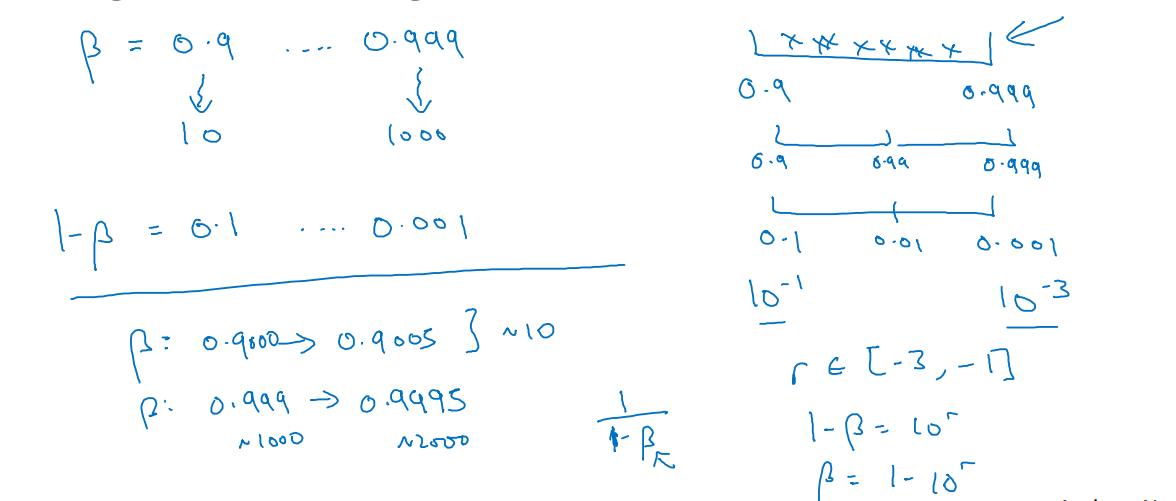 β = 0.9 .... 0.999
10 1000
1-β = 0.1 .... 0.001
β: 0.9000 → 0.9005 } ~10
β: 0.999 → 0.9995
~1000 ~2000
1
1-β
x x x x x x
0.9 0.999
0.9 0.99 0.999
0.1 0.01 0.001
10⁻¹ 10⁻³
r ∈ [-3, -1]
1-β = 10ʳ
β = 1-10ʳ